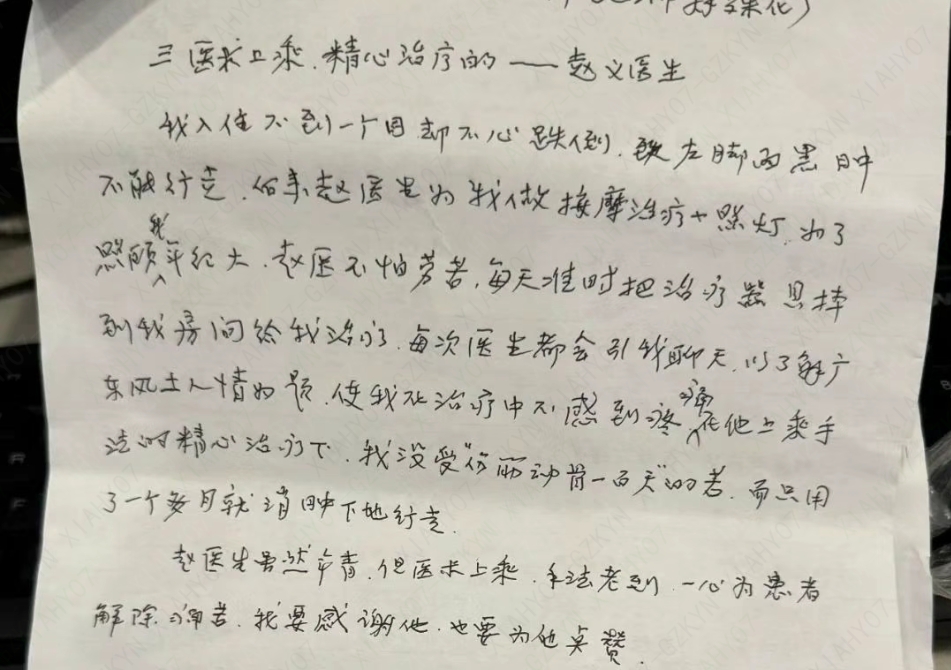 三 医术上乘.精心治疗的——赵义医生
我入住不到一个月却不心跌倒.致左脚面黑肿
不能行走.后来赵医生为我做按摩治疗+照灯.为了
照顾我年纪大.赵医不怕劳苦,每天准时把治疗器具捧
到我房间给我治疗.每次医生都会引我聊天.以了解广
东风土人情为题.使我在治疗中不感到疼痛在他上乘手
法的精心治疗下.我没受"伤筋动骨一百天"的苦.而只用
了一个多月就消肿下地行走.
赵医生虽然年青.但医术上乘.手法老到.一心为患者
解除痛苦.我要感谢他.也要为他点赞.